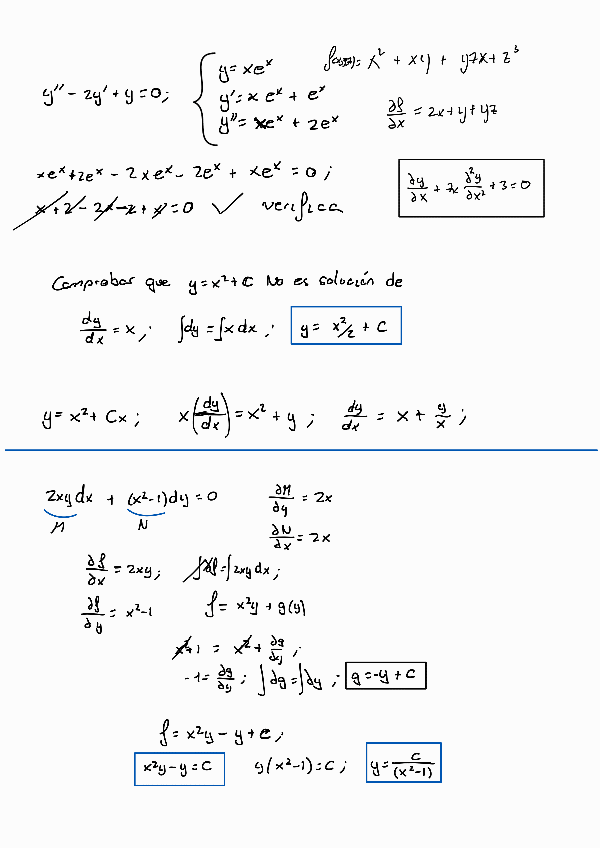 y'' - 2y' + y = 0; { y = xeˣ
y' = x eˣ + eˣ
y'' = xeˣ + 2eˣ
f(x,y,z) = x² + xy + yzx + z³
∂f/∂x = 2x + y + yz
xeˣ + 2eˣ - 2xeˣ - 2eˣ + xeˣ = 0 ;
x + 2 - 2x - 2 + x = 0 ✓ verifica
∂y/∂x + 7x ∂²y/∂x² + 3 = 0
Comprobar que y = x² + C No es solución de
dy/dx = x ; ∫dy = ∫x dx ; y = x²/2 + C
y = x² + Cx ; x(dy/dx) = x² + y ; dy/dx = x + y/x ;
2xy dx + (x²-1)dy = 0
M N
∂M/∂y = 2x
∂N/∂x = 2x
∂f/∂x = 2xy ; ∫∂f = ∫2xy dx ;
∂f/∂y = x² - 1 f = x²y + g(y)
x² - 1 = x² + ∂g/∂y ;
-1 = ∂g/∂y ; ∫∂g = ∫∂y ; g = -y + C
f = x²y - y + C ;
x²y - y = C y(x²-1) = C ; y = C/(x²-1)